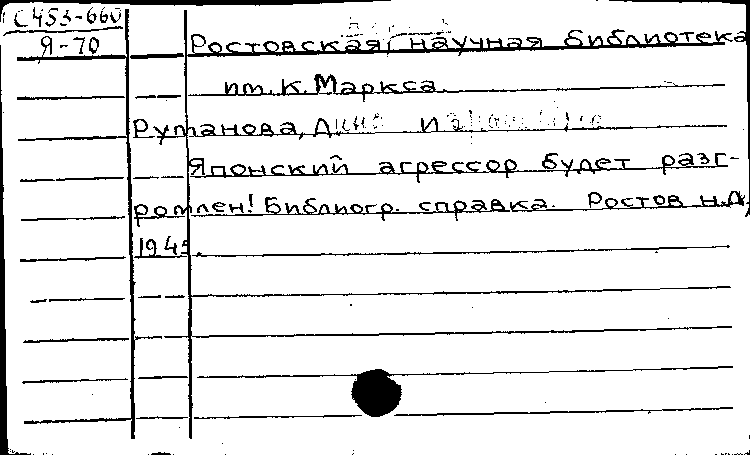 С453-660
Я-70
Ростовская научная библиотека
им. К. Маркса.
Руманова,
Японский агрессор будет разг-
ромлен! Библиогр. справка. Ростов н.Д,
1945.